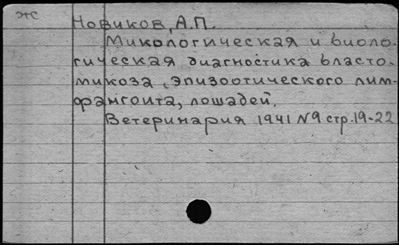 ж
Новиков, А.П.
Микологическая и биоло-
гическая диагностика бласто-
микоза, эпизоотического лим-
фангоита, лошадей.
Ветеринария 1941 N9 стр.19-22